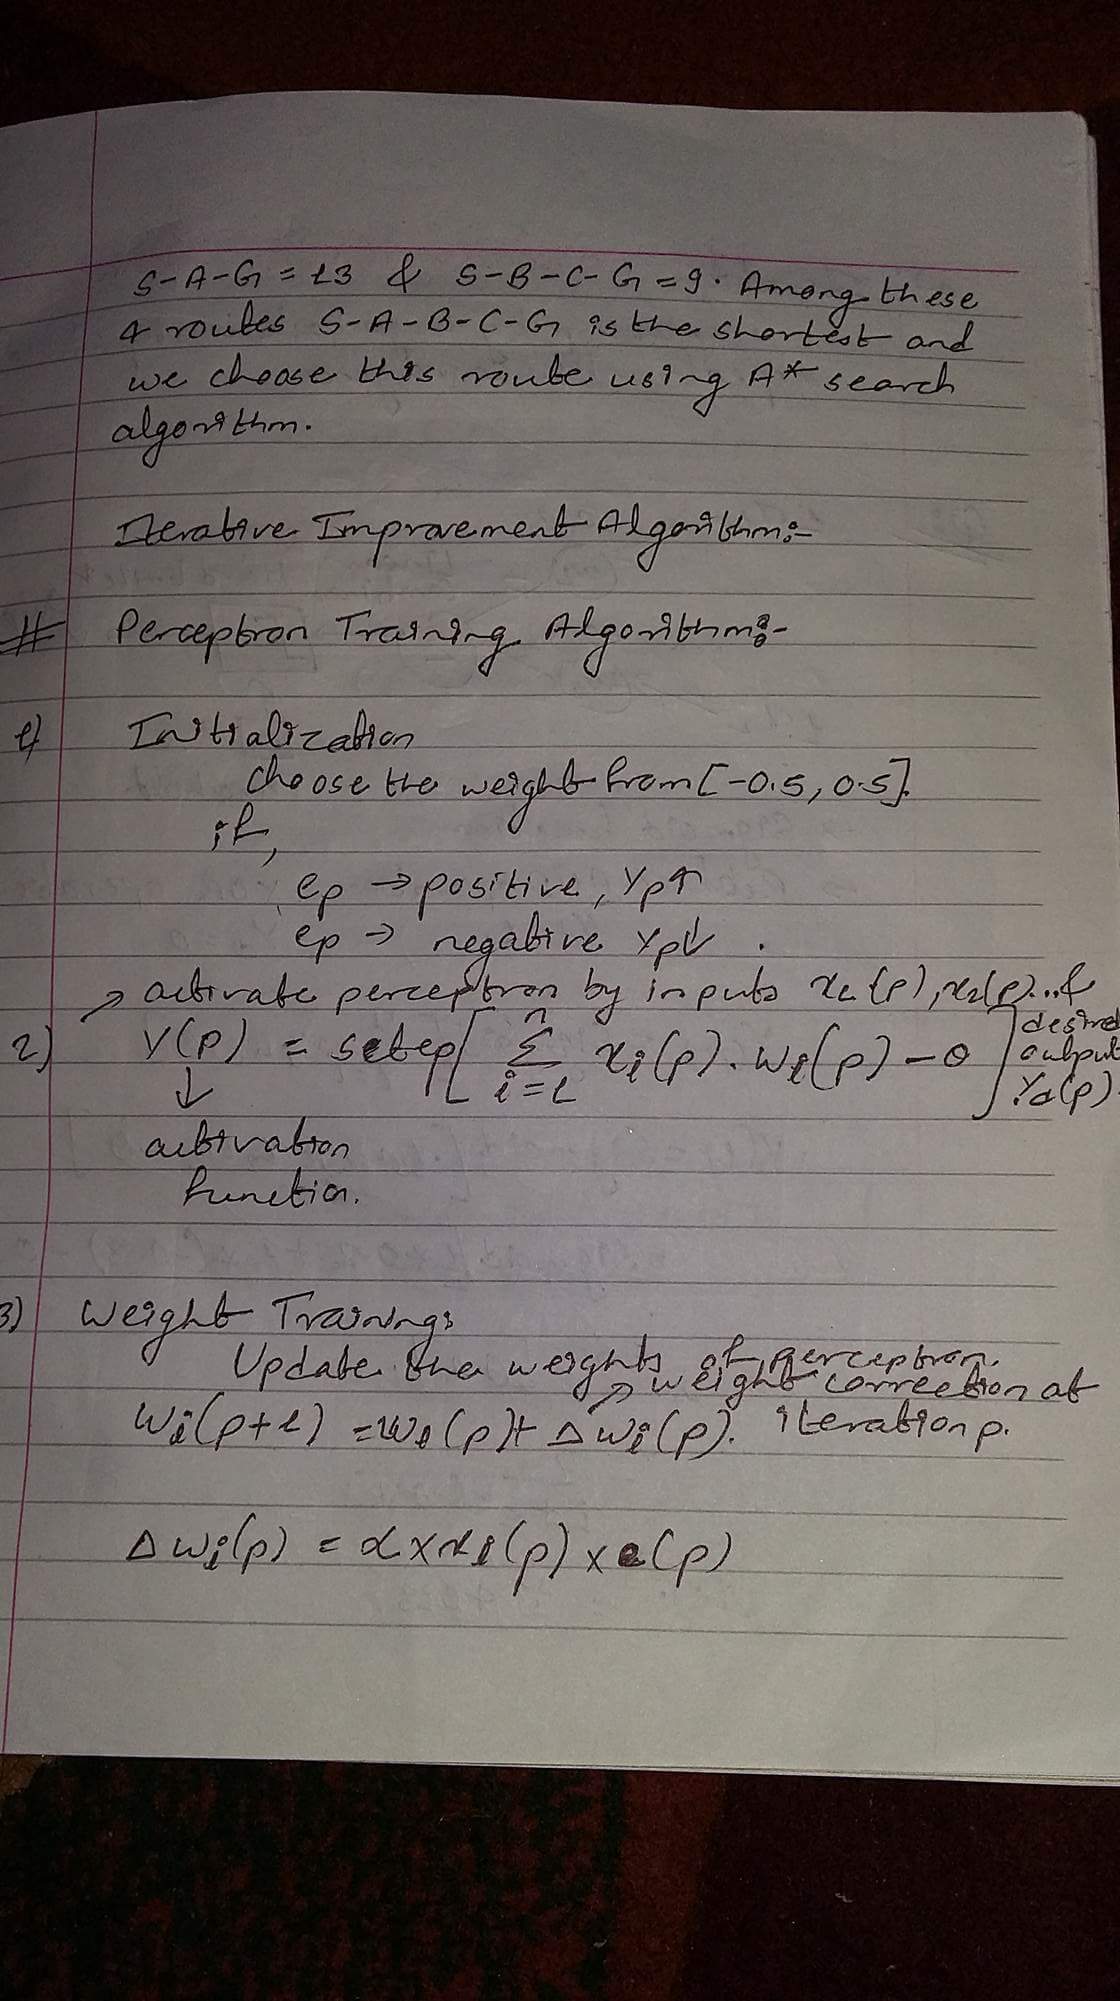 S-A-G = 13 & S-B-C-G = 9. Among these
4 routes S-A-B-C-G is the shortest and
we choose this route using A* search
algorithm.
Iterative Improvement Algorithm:-
# Perceptron Training Algorithm:-
1) Initialization
choose the weight from [-0.5, 0.5].
if,
ep → positive, Yp↑
ep → negative Yp↓ .
→ activate perceptron by inputs x1(p), x2(p)...&
desired output Yd(p).
2) Y(p) = setep[ n Σ i=1 xi(p). wi(p) - θ ]
↓
activation
function.
3) Weight Training:
Update the weights of perceptron.
→ weight correction at
wi(p+1) = wi(p) + Δwi(p). iteration p.
Δwi(p) = α x xi(p) x e(p)